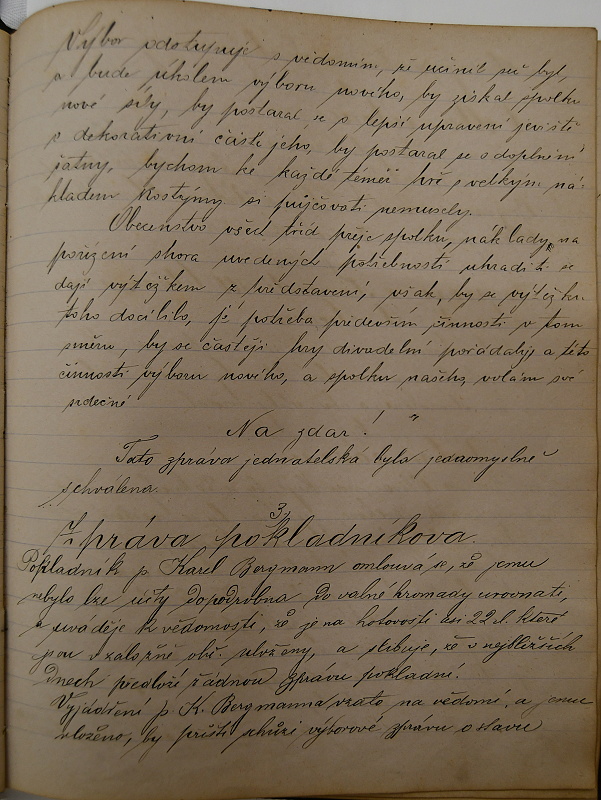 Výbor odstupuje s vědomím, že učinil seč byl,
a bude úkolem výboru nového, by získal spolku
nové síly, by postaral se o lepší upravení jeviště
s dekorativní části jeho, by postaral se o doplnění
šatny, bychom ke každé téměř hře s velkým ná-
kladem kostýmy si půjčovati nemusely.
Obecenstvo všech tříd přeje spolku, náklady na
pořízení shora uvedených potřebností uhraditi se
dají výtěžkem z představení, však, by se výtěžku
toho docílilo, jé potřeba především činnosti v tom
směru, by se častěji hry divadelní pořádaly, a této
činnosti výboru nového, a spolku našeho volám své
srdečné
Na zdar! "
Tato zpráva jednatelská byla jednomyslně
schválena.
3.
Zpráva pokladníkova.
Pokladník p. Karel Bergmann omlouvá se, že jemu
nebylo lze účty dopodrobna do valné hromady urovnati,
a uváděje k vědomosti, že je na hotovosti asi 22 zl. které
jsou v záložně obč. uloženy, a slibuje, že v nejbližších
dnech předloží řádnou zprávu pokladní.
Vyjádření p. K. Bergmanna vzato na vědomí, a jemu
uloženo, by příští schůzi výborové zprávu o stavu